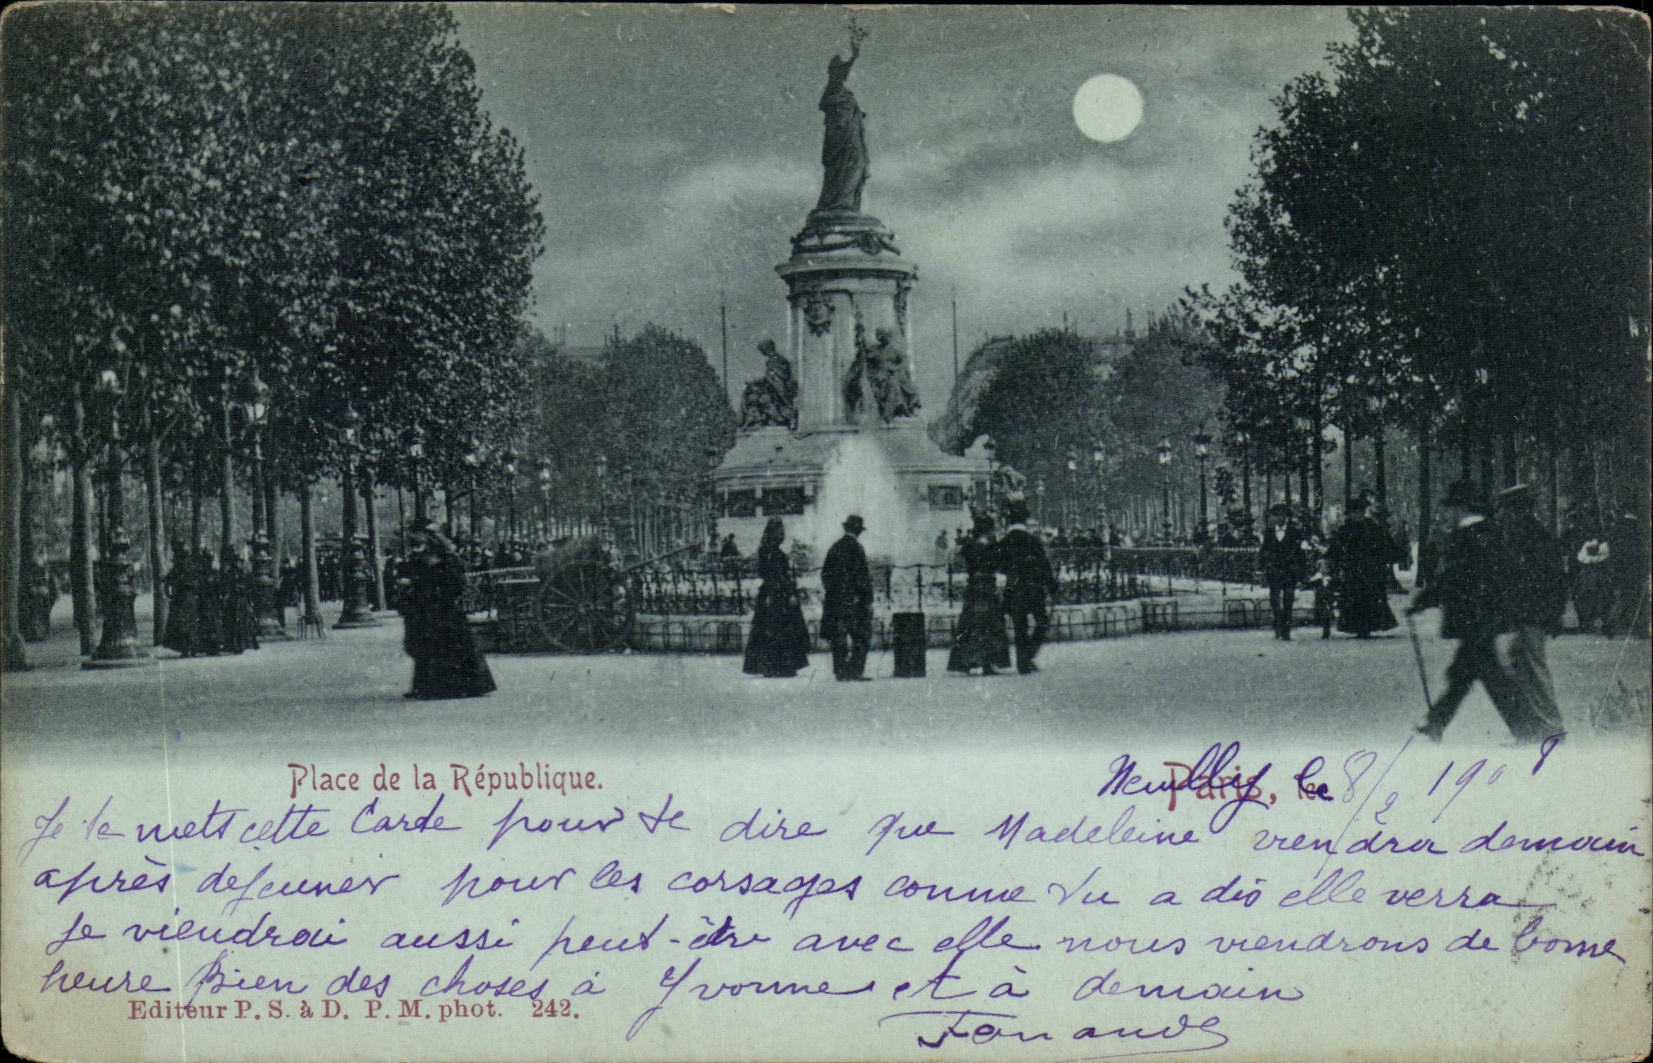 Place de la République.
Neuilly Paris, le 8/2 1908
Je te mets cette Carte pour te dire que Madeleine viendra demain
après déjeuner pour les corsages comme tu a dis elle verra
Je viendrai aussi peut-être avec elle nous viendrons de bonne
heure Bien des choses à Yvonne et à demain
Editeur P. S. à D. P. M. phot. 242.
Fernande